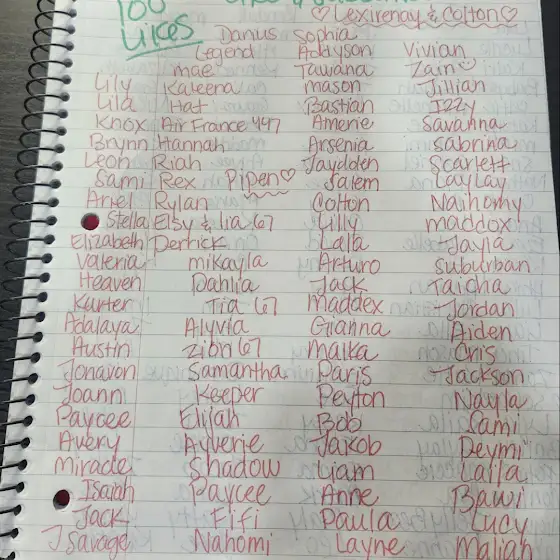 100
Likes
♡Lexirenay & Colton♡
Darius Sophia
Legend Addyson Vivian
mae Tawana Zain
Lily Kaleena mason Jillian
Lila Hat Bastian Izzy
Knox Air France 447 Amerie Savanna
Brynn Hannah Arsenia Sabrina
Leon Riah Jaydden Scarlett
Sami Rex Pipen♡ Salem LayLay
Ariel Rylan Colton Naihomy
Stella Elsy & lia 67 Lilly maddox
Elizabeth Derrick Laila Jayla
Valeria mikayla Arturo suburban
Heaven Dahlia Jack Taicha
Karter Tia 67 Maddex Jordan
Adalaya Alyvia Gianna Aiden
Austin Zion 67 Malka Cris
Jonavon Samantha Paris Jackson
Joann Keeper Peyton Nayla
Paycee Elijah Bob Sami
Avery Ayverie Jakob Deymi
Miracle Shadow Liam Laila
Isaiah Paycee Anne Bawi
Jack Fifi Paula Lucy
J Savage Nahomi Layne Maliah